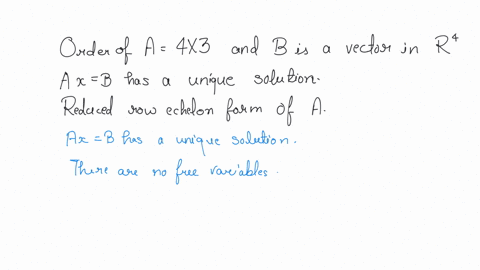 Order of A = 4X3 and B is a vector in R⁴
Ax=B has a unique solution.
Reduced row echelon form of A.
Ax=B has a unique solution.
There are no free variables.